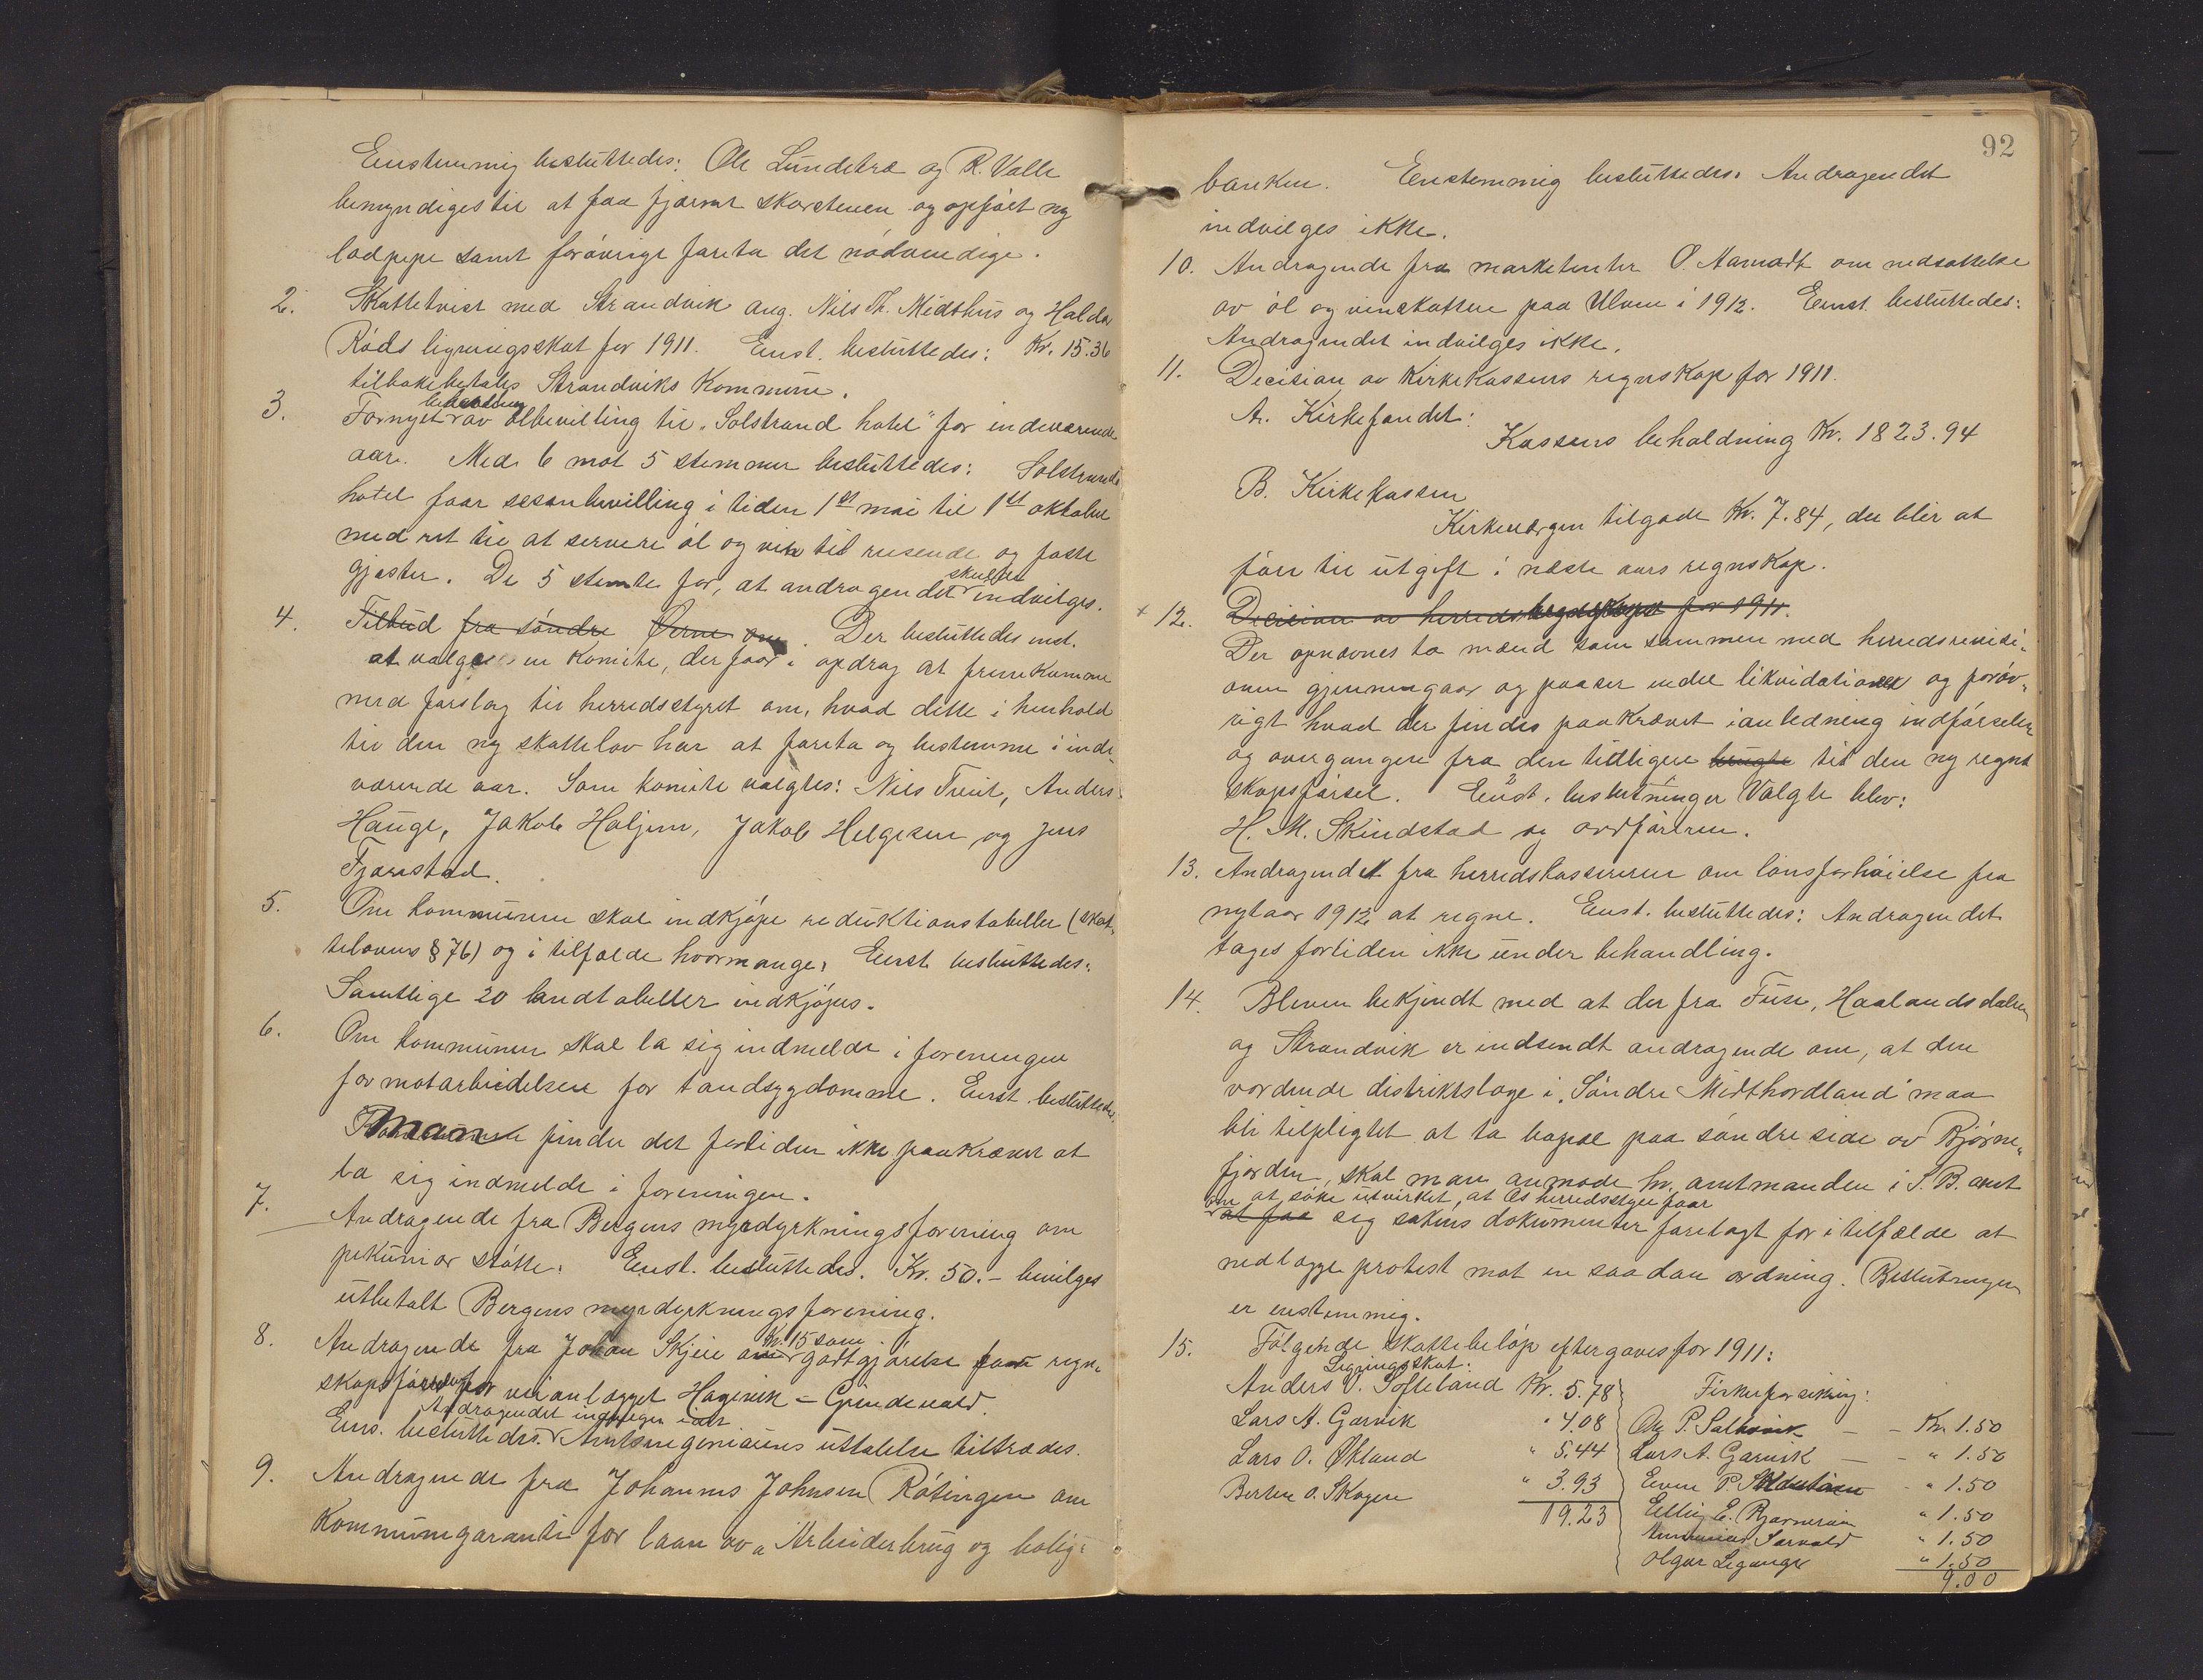 Enstemmig besluttedes: Ole Lundetræ og R. Valle
bemyndiges til at faa fjærnet skorstenen og opført ny
lodpipe samt forøvrigt foreta det nødvendige.
2. Skattetvist med Strandvik ang. Nils Th. Midthus og Haldor
Røds ligningsskat for 1911. Enst. besluttedes: Kr. 15.36
tilbakebetales Strandviks kommune.
3. Fornyet behandling av ølbevilling til "Solstrand hotel" for indeværende
aar. Med 6 mot 5 stemmer besluttedes: Solstrand
hotel faar sesonbevilling i tiden 1st mai til 1st oktober
med ret til at servere øl og vin til reisende og faste
gjester. De 5 stemte for, at andragendet skulde indvilges.
4. Tilbud fra søndre Øvre om. Der besluttedes enst.
at vælge en komite, der faar i opdrag at fremkomme
med forslag til herredsstyret om, hvad dette i henhold
til den ny skattelov har at foreta og bestemme i inde-
værende aar. Som komite valgtes: Nils Tveit, Anders
Hauge, Jakob Haljem, Jakob Helgesen og Jens
Fjærestad.
5. Om kommunen skal indkjøpe reduktionstabeller (skat-
telovens § 76) og i tilfælde hvormange. Enst. besluttedes:
Samtlige 20 landtabeller indkjøpes.
6. Om kommunen skal la sig indmelde i foreningen
for motarbeidelsen for tandsygdomme. Enst. besluttedes:
man finder det fortiden ikke paakrævet at
la sig indmelde i foreningen.
7. Andragende fra Bergens myrdyrkningsforening om
pekuniær støtte. Enst. besluttedes. Kr. 50.- bevilges
utbetalt Bergens myrdyrkningsforening.
8. Andragende fra Johan Skjeie om Kr. 15 som godtgjørelse som regn-
skapsfører for veianlægget Hagevik - Grindevald.
Ens. besluttedes. Andragendet indvilges idet Amtsingeniørens uttalelse tiltrædes.
9. Andragende fra Johannes Johnsen Røtingen om
kommunegaranti for laan av "Arbeiderbrug og bolig-
92
banken. Enstemmig besluttedes. Andragendet
indvilges ikke.
10. Andragende fra marketenter O. Aamodt om nedsættelse
av øl og vinskatten paa Ulven i 1912. Enst. besluttedes:
Andragendet indvilges ikke.
11. Decision av Kirkekassens regnskap for 1911.
A. Kirkefondet:
Kassens beholdning Kr. 1823.94
B. Kirkekassen
Kirkeværgen tilgode Kr. 7.84, der blir at
føre til utgift i næste aars regnskap.
+ 12. Decision av herredsregnskapet for 1911.
Der opnævnes to mænd som sammen med herredsrevisi-
onen gjennemgaar og paaser endel likvidationer og forøv-
rigt hvad der findes paakrævet i anledning indførselen
og overgangen fra den tidligere brugte til den ny regn-
skapsførsel. Enst. beslutninger Valgte blev:
H. M. Skindstad og ordføreren.
13. Andragendet fra herredskassereren om lønsforhøielse fra
nytaar 1912 at regne. Enst. besluttedes: Andragendet
tages fortiden ikke under behandling.
14. Bleven bekjendt med at der fra Fuse, Haalandsdalen
og Strandvik er indsendt andragende om, at den
vordende distriktslæge i "Søndre Midthordland" maa
bli tilpligtet at ta bopæl paa søndre side av Bjørne-
fjorden, skal man anmode hr. amtmanden i S. B. amt
om at søke utvirket, at Os herredsstyre faar
at faa sig sakens dokumenter forelagt for i tilfælde at
nedlægge protest mot en saadan ordning. Beslutningen
er enstemmig.
15. Følgende skattebeløp eftergaves for 1911:
Ligningsskat:
Anders O. Softeland Kr. 5.78
Lars A. Garvik " 4.08
Lars O. Økland " 5.44
Berte O. Skogen " 3.93
19.23
Firkerforsikring:
Ole P. - - Kr. 1.50
Lars A. Garvik - - " 1.50
Even P. " 1.50
Elling E. " 1.50
Sørvold " 1.50
Olgar Leganger " 1.50
9.00